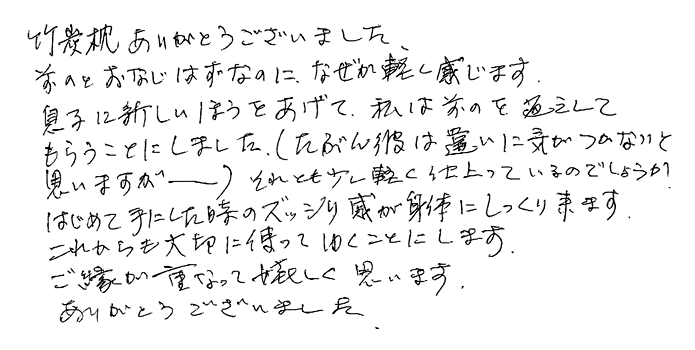 竹炭枕ありがとうございました、
前のとおなじはずなのに、なぜか軽く感じます.
息子に新しいほうをあげて、私は前のを返して
もらうことにしました.(たぶん彼は違いに気がつかないと
思いますが――) それとも少し軽く仕上っているのでしょうか?
はじめて手にした時のズッシリ感が身体にしっくり来ます.
これからも大切に使ってゆくことにします.
ご縁が重なって嬉しく思います.
ありがとうございました.